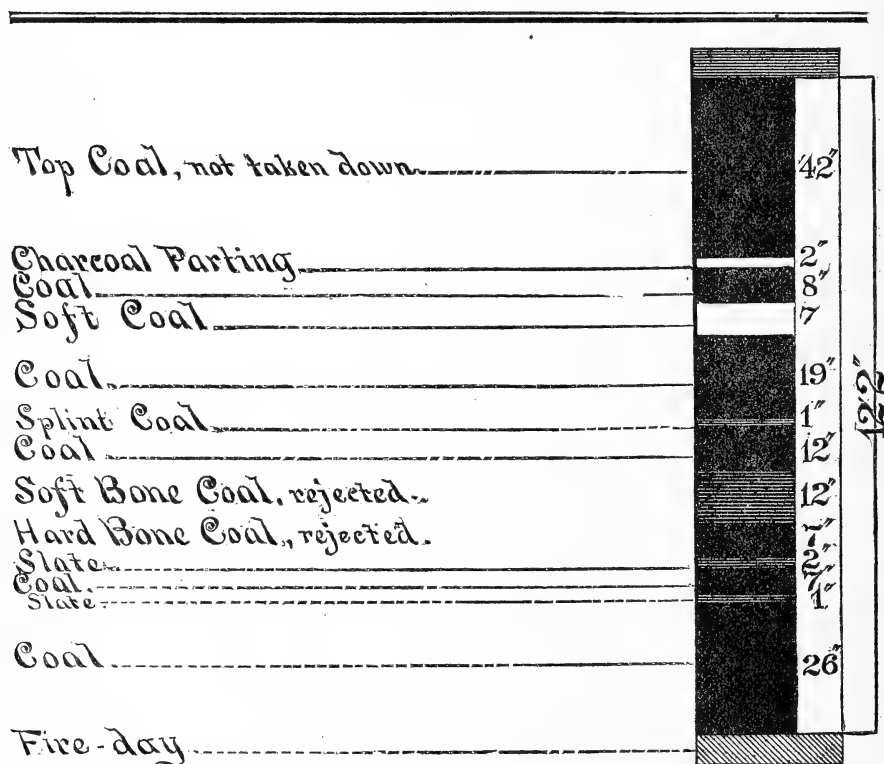 Top Coal, not taken down 42"
Charcoal Parting 2"
Coal 8"
Soft Coal 7
Coal 19"
Splint Coal 1"
Coal 12"
Soft Bone Coal, rejected. 12"
Hard Bone Coal, rejected.
Slate
Coal.
Slate 1"
Coal 26"
Fire-day
12'2"